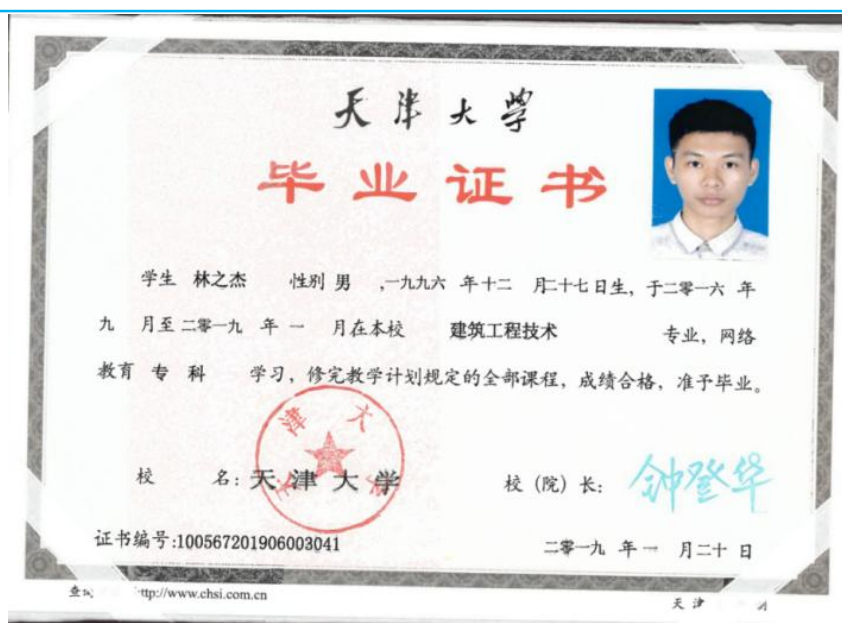 天津大学
毕业证书
学生 林之杰 性别 男 ,一九九六 年十二 月二十七日生，于二零一六 年
九 月至 二零一九 年 一 月在本校 建筑工程技术 专业，网络
教育 专 科 学习，修完教学计划规定的全部课程，成绩合格，准予毕业。
天津大学
校 名: 天 津 大 学 校（院）长: 钟登华
证书编号:100567201906003041 二零一九 年 一 月二十 日
查 ttp://www.chsi.com.cn 天津